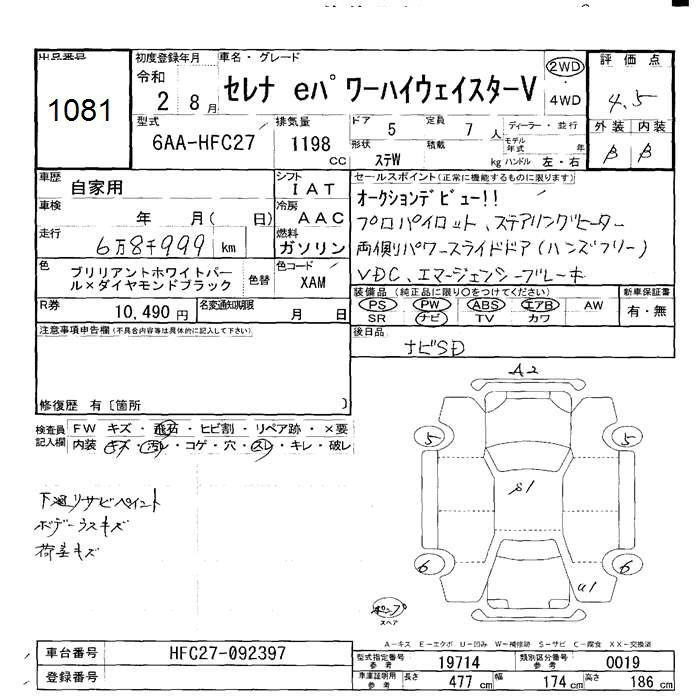 出品番号
1081
初度登録年月
令和
2 8月
車名・グレード
セレナ eパワーハイウェイスターV
2WD
・
4WD
評価点
4.5
型式
6AA-HFC27
排気量
1198
cc
ドア
5
定員
7
人
形状
ステW
積載
kg
ディーラー・並行
モデル年式
年
ハンドル 左・右
外装 内装
B B
車歴
自家用
シフト
IAT
車検
年 月( 日)
冷房
AAC
走行
6万8千999 km
燃料
ガソリン
色
ブリリアントホワイトパール×ダイヤモンドブラック
色替
色コード
XAM
R券
10,490円
名変通知期限
月 日
セールスポイント(正常に機能するものに限ります)
オークションデビュー!!
プロパイロット、ステアリングヒーター
両側パワースライドドア(ハンズフリー)
VDC、エマージェンシーブレーキ
装備品(純正品に限り○をつけてください)
PS PW ABS エアB AW
SR ナビ TV カワ
新車保証書
有・無
注意事項申告欄(不具合内容等は具体的に記入して下さい)
修復歴 有〔箇所 〕
後日品
ナビSD
検査員記入欄
FW キズ・飛石・ヒビ割・リペア跡・×要
内装 キズ・汚れ・コゲ・穴・スレ・キレ・破レ
下廻りサビペイント
ボデーウスキズ
荷室キズ
A2
5
5
S1
6
6
U1
ポンプ
スペア
A-キズ E-エクボ U-凹み W-補修跡 S-サビ C-腐食 XX-交換済
車台番号
HFC27-092397
登録番号
型式指定番号
参考
19714
類別区分番号
参考
0019
車庫証明用
参考
長さ
477 cm
幅
174 cm
高さ
186 cm